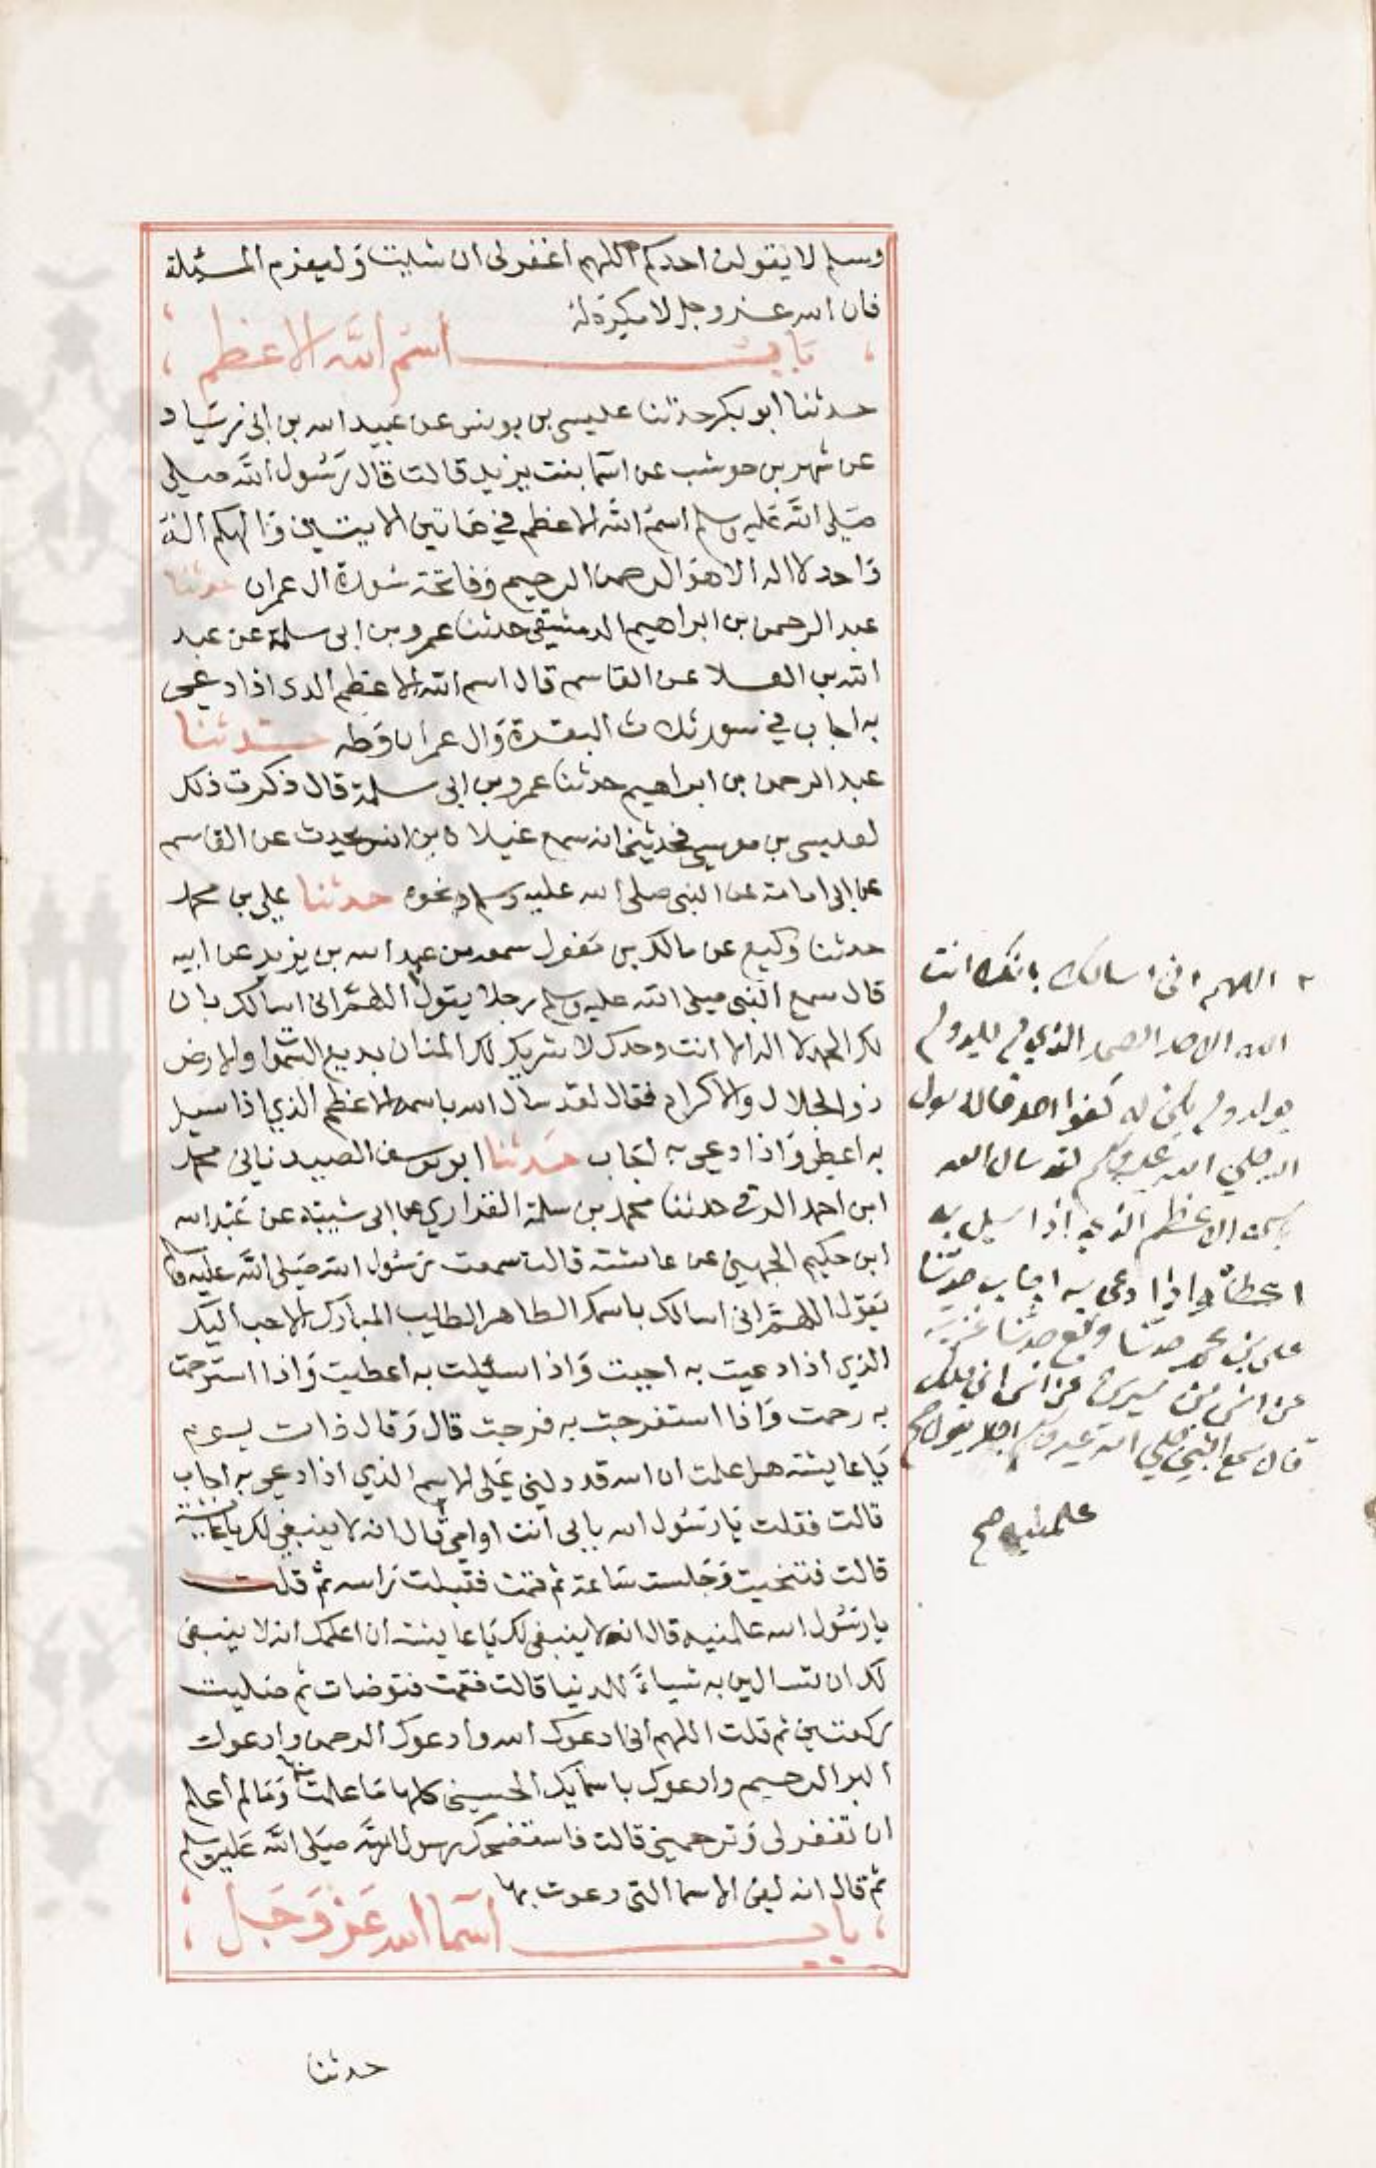 وسلم لا يقولن احدكم اللهم اغفرلى ان شئت وليعزم المسئلة
فان الله عز وجل لا مكره له
باب اسم الله الاعظم
حدثنا ابو بكر حدثنا عيسى بن يونس عن عبيد الله بن ابى زياد
عن شهر بن حوشب عن اسما بنت يزيد قالت قال رسول الله صلى
صلى الله عليه وسلم اسم الله الاعظم في هاتين الايتين والهكم اله
واحد لا اله الا هو الرحمن الرحيم وفاتحة سورة ال عمران حدثنا
عبد الرحمن بن ابراهيم الدمشقى حدثنا عمرو بن ابى سلمة عن عبد
الله بن العلا عن القاسم قال اسم الله الاعظم الذى اذا دعى
به اجاب في سور ثلاث البقرة وال عمران وطه حدثنا
عبد الرحمن بن ابراهيم حدثنا عمرو بن ابى سلمة قال ذكرت ذلك
لعيسى بن موسى فحدثنى انه سمع غيلان بن انس يحدث عن القاسم
عن ابى امامة عن النبى صلى الله عليه وسلم نحوه حدثنا على بن محمد
حدثنا وكيع عن مالك بن مغول سمعه من عبد الله بن يزيد عن ابيه
قال سمع النبى صلى الله عليه وسلم رجلا يقول اللهم انى اسالك بان
لك الحمد لا اله الا انت وحدك لا شريك لك المنان بديع السموا والارض
ذو الجلال والاكرام فقال لقد سال الله باسمه الاعظم الذي اذا سيل
به اعطى واذا دعى به اجاب حدثنا ابو يوسف الصيدنانى محمد
ابن احمد الرقى حدثنا محمد بن سلمة الفزاري عن ابى شيبة عن عبد الله
ابن حكيم الجهينى عن عائشة قالت سمعت رسول الله صلى الله عليه وسلم
يقول اللهم انى اسالك باسمك الطاهر الطيب المبارك الاحب اليك
الذي اذا دعيت به اجبت واذا سئلت به اعطيت واذا استرحمت
به رحمت واذا استفرجت به فرجت قال وقال ذات يوم
يا عايشة هل علمت ان الله قد دلنى على الاسم الذي اذا دعى به اجاب
قالت فقلت يا رسول الله بابى انت وامى قال انه لا ينبغى لك يا عائشة
قالت فتنحيت وجلست ساعة ثم قمت فقبلت راسه ثم قلت
يا رسول الله علمنيه قال انه لا ينبغى لك يا عايشة ان اعلمك انه لا ينبغى
لك ان تسالين به شياء للدنيا قالت فقمت فتوضات ثم صليت
ركعتين ثم قلت اللهم انى ادعوك الله وادعوك الرحمن وادعوك
البر الرحيم وادعوك باسمايك الحسنى كلها ما علمت منها وما لم اعلم
ان تغفر لى وترحمنى قالت فاستضحك رسول الله صلى الله عليه وسلم
ثم قال انه لفى الاسما التى دعوت بها
باب اسما الله عز وجل
حدثنا
اللهم انى اسالك بانك انت
الله الاحد الصمد الذي لم يلد ولم
يولد ولم يكن له كفوا احد فقال رسول
الله صلى الله عليه وسلم لقد سال الله
باسمه الاعظم الذي اذا سيل به
اعطا واذا دعى به اجاب حدثنا
على بن محمد حدثنا وكيع حدثنا
عن انس بن سيرين عن انس بن ملك
قال سمع النبي صلى الله عليه وسلم رجلا يقول صح
علمنيه صح